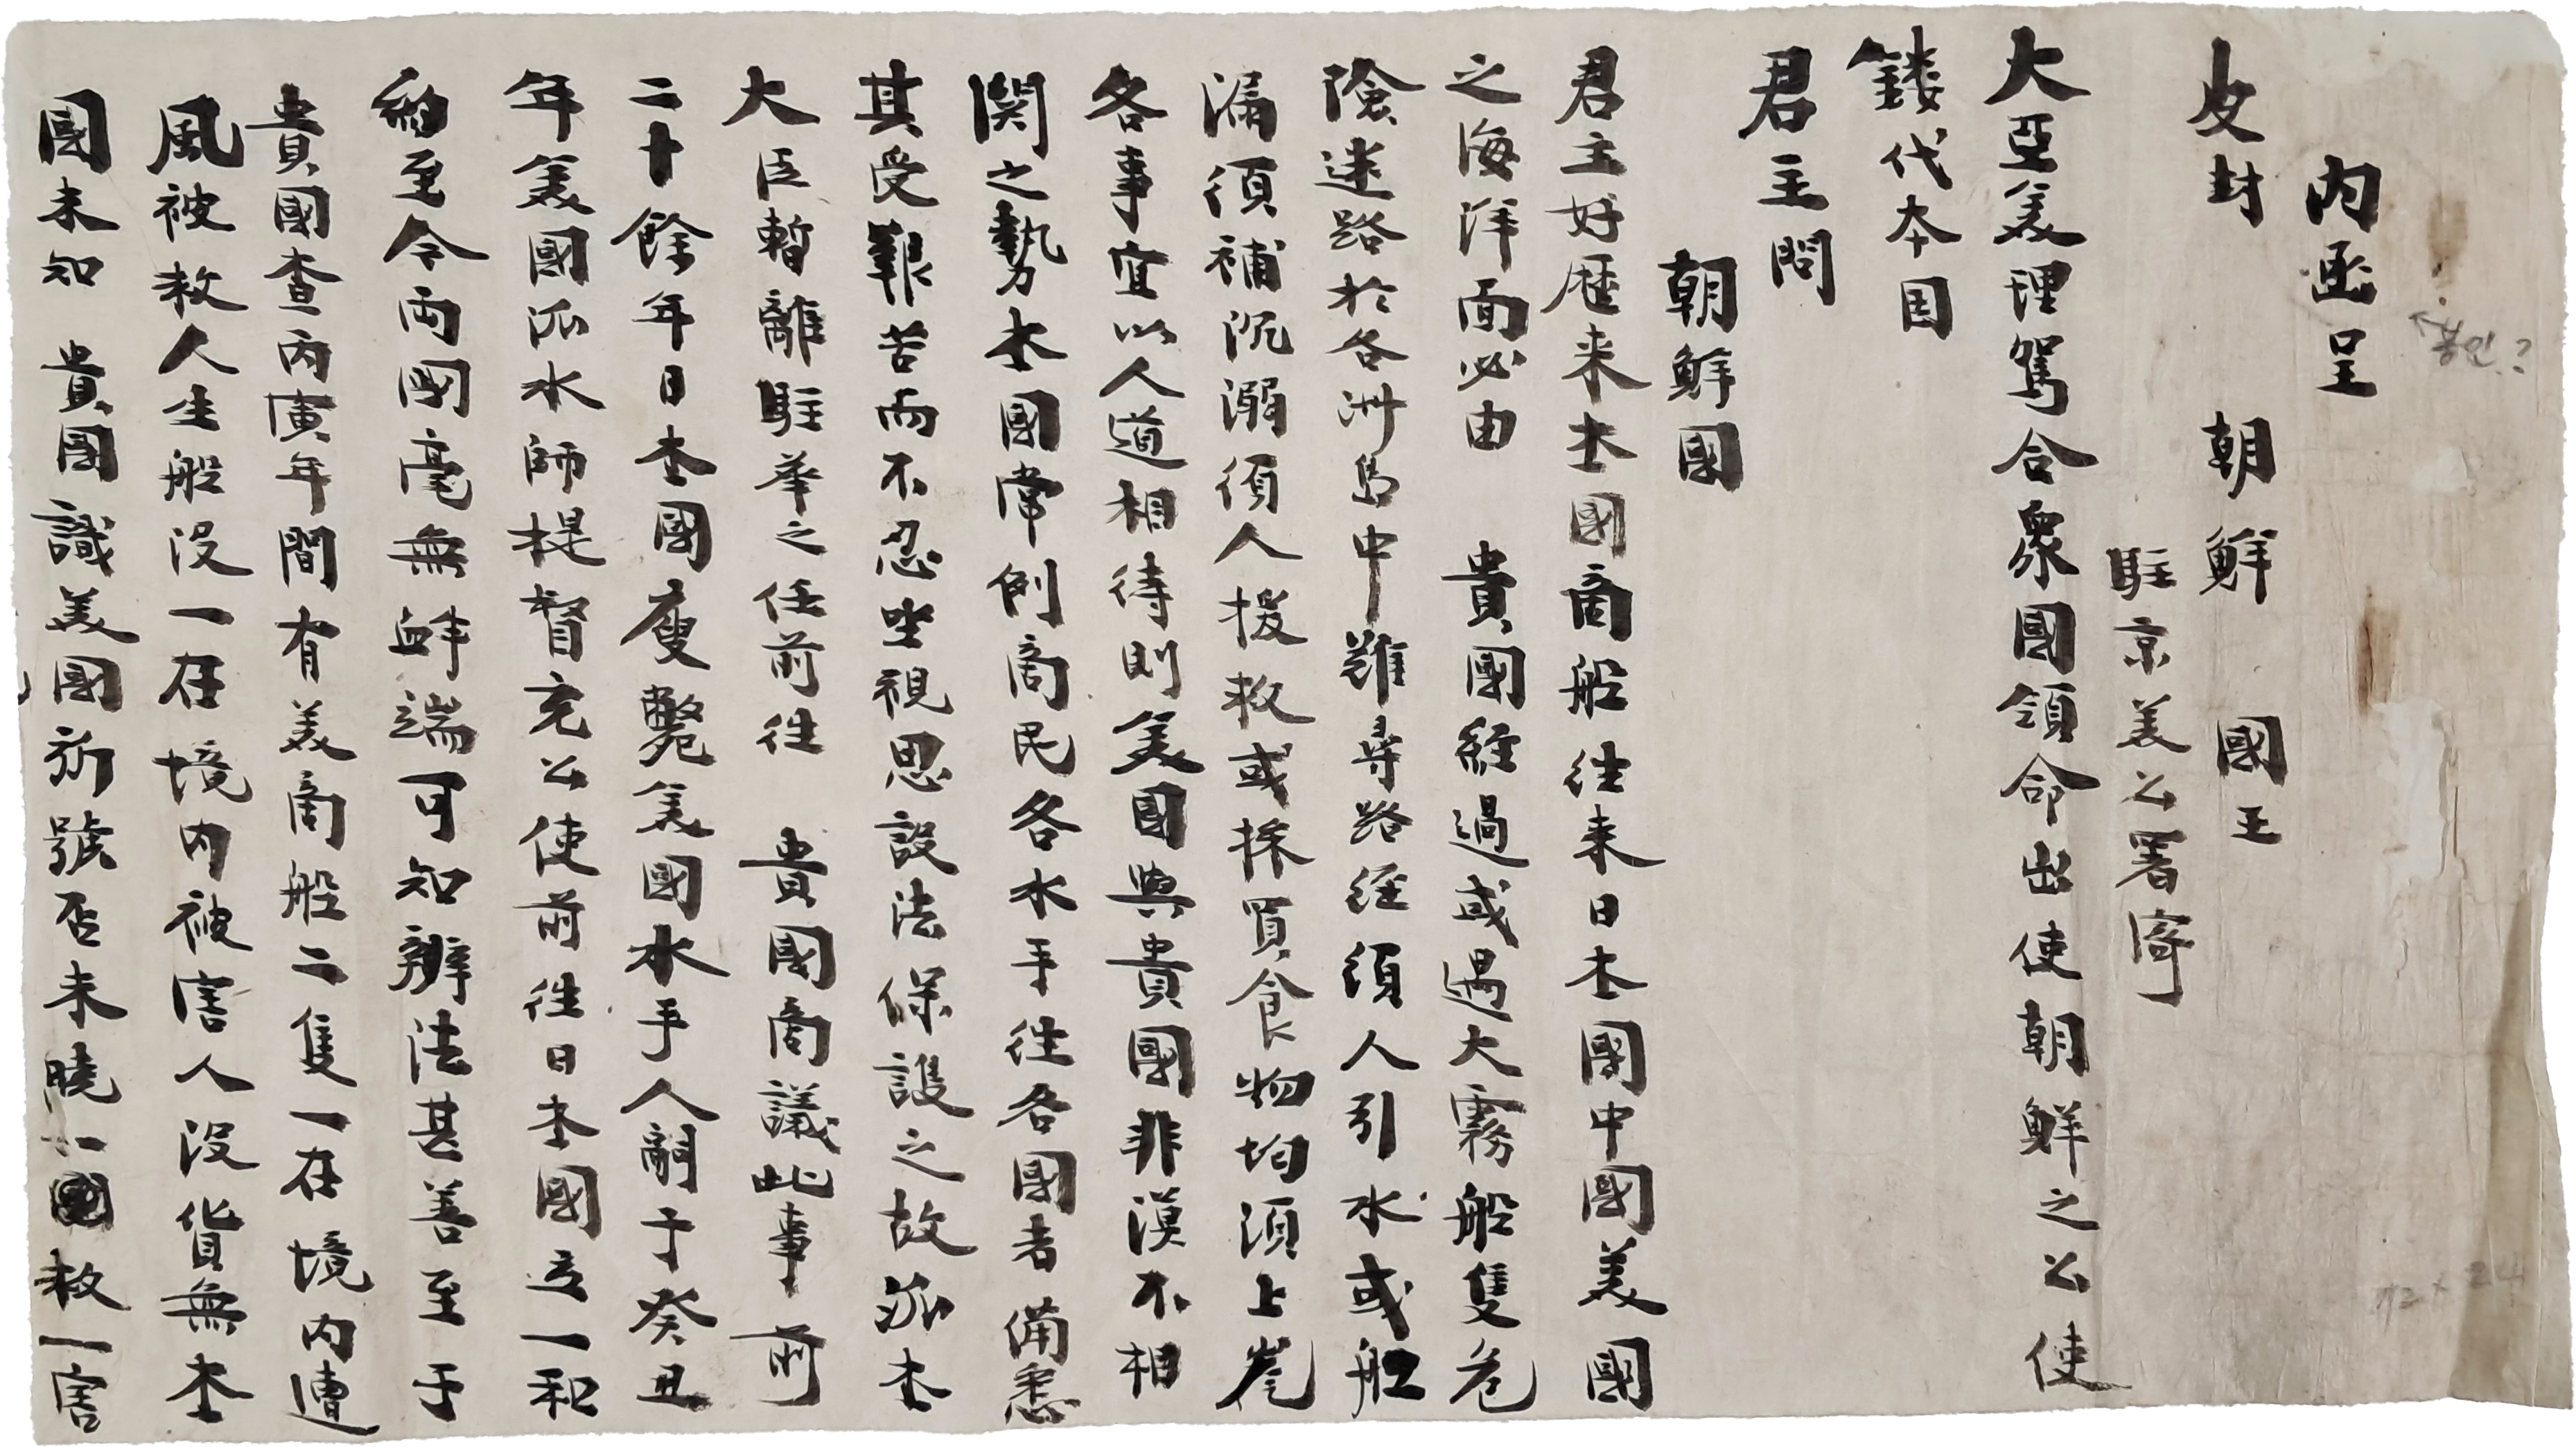 內函呈
皮封 朝鮮 國王
駐京美公署寄
大亞美理駕合衆國領命出使朝鮮之公使
鏤代本国
君主問
朝鮮國
君主好歷来本國商船往来日本國中國美國
之海洋面必由 貴國經過或遇大霧船隻危
險迷路於各洲島中難尋路径須人引水或船
漏須補沉溺須人援救或採買食物均須上崖
各事宜以人道相待則美國與貴國非漠不相
関之勢本國常例商民各水手往各國者備悉
其受艱苦而不忍坐視思設法保護之故派本
大臣暫離駐華之任前往 貴國商議此事前
二十餘年日本國瘦斃美國水手人嗣于癸丑
年美國派水師提督充公使前往日本國立一和
約至今两國毫無衅端可知辦法甚善至于
貴國查丙寅年間有美商船二隻一在境内遭
風被救人生船没一在境内被害人没貨無本
國未知 貴國識美國祈號否未曉一國救一害